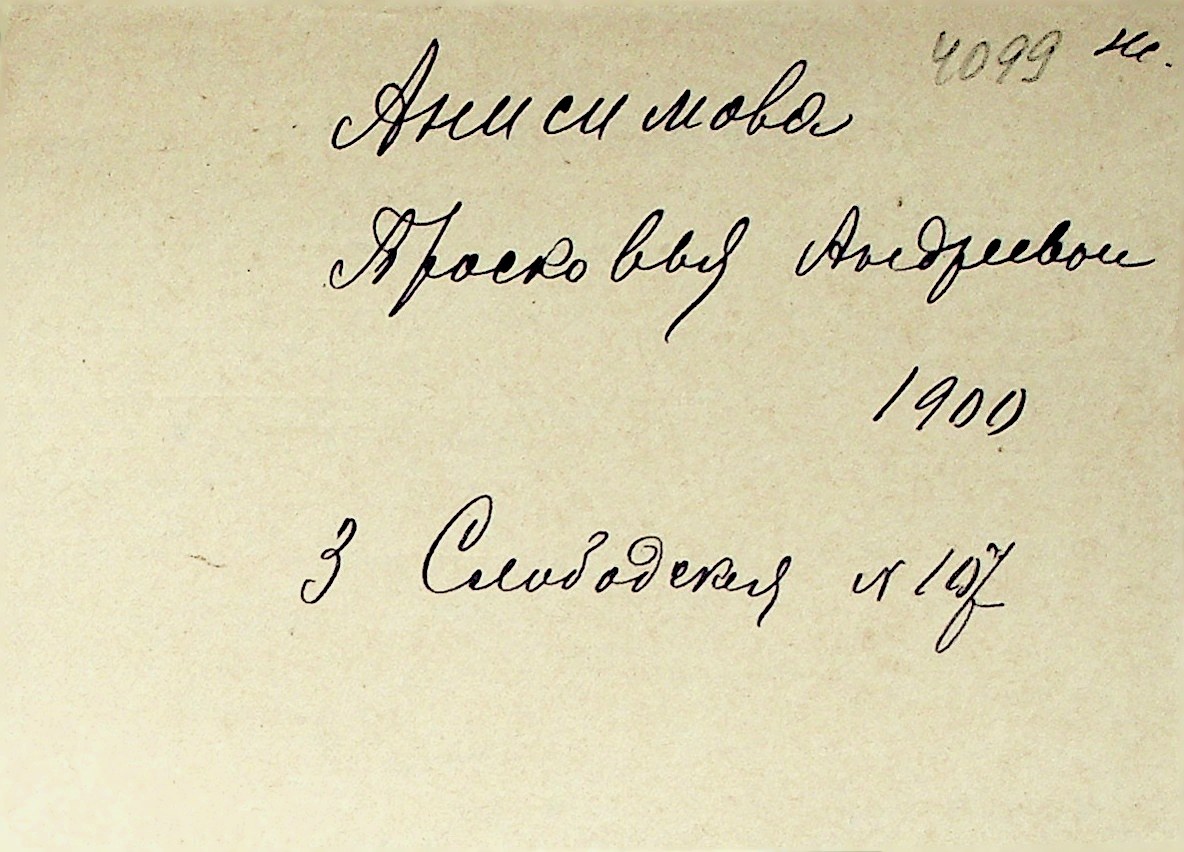 4099 ж.
Анисимова
Просковья Андреевои
1900
3 Слободская N 107